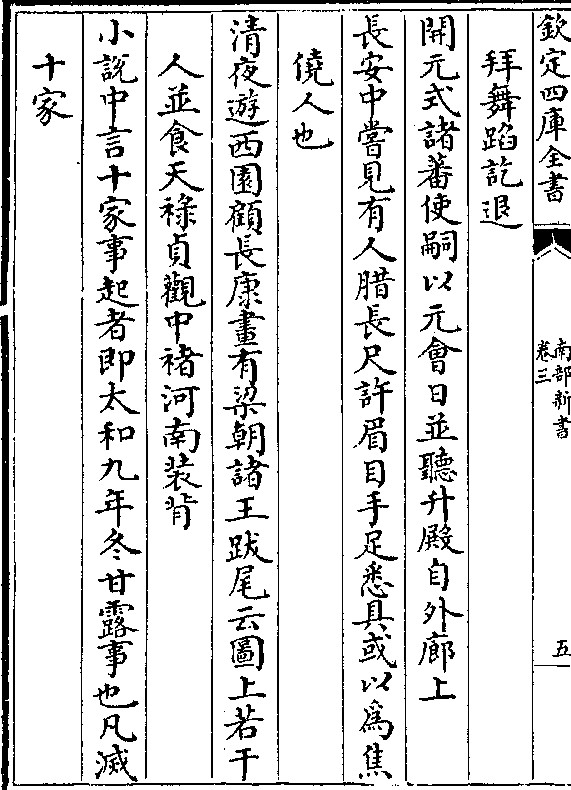 欽定四庫全書
南部新書
卷三
五
拜舞蹈訖退
開元式諸蕃使嗣以元會日並聽升殿自外廊上
長安中嘗見有人腊長尺許眉目手足悉具或以爲焦
僥人也
清夜遊西園顧長康畫有梁朝諸王跋尾云圖上若干
人並食天祿貞觀中褚河南装背
小說中言十家事起者即太和九年冬甘露事也凡滅
十家